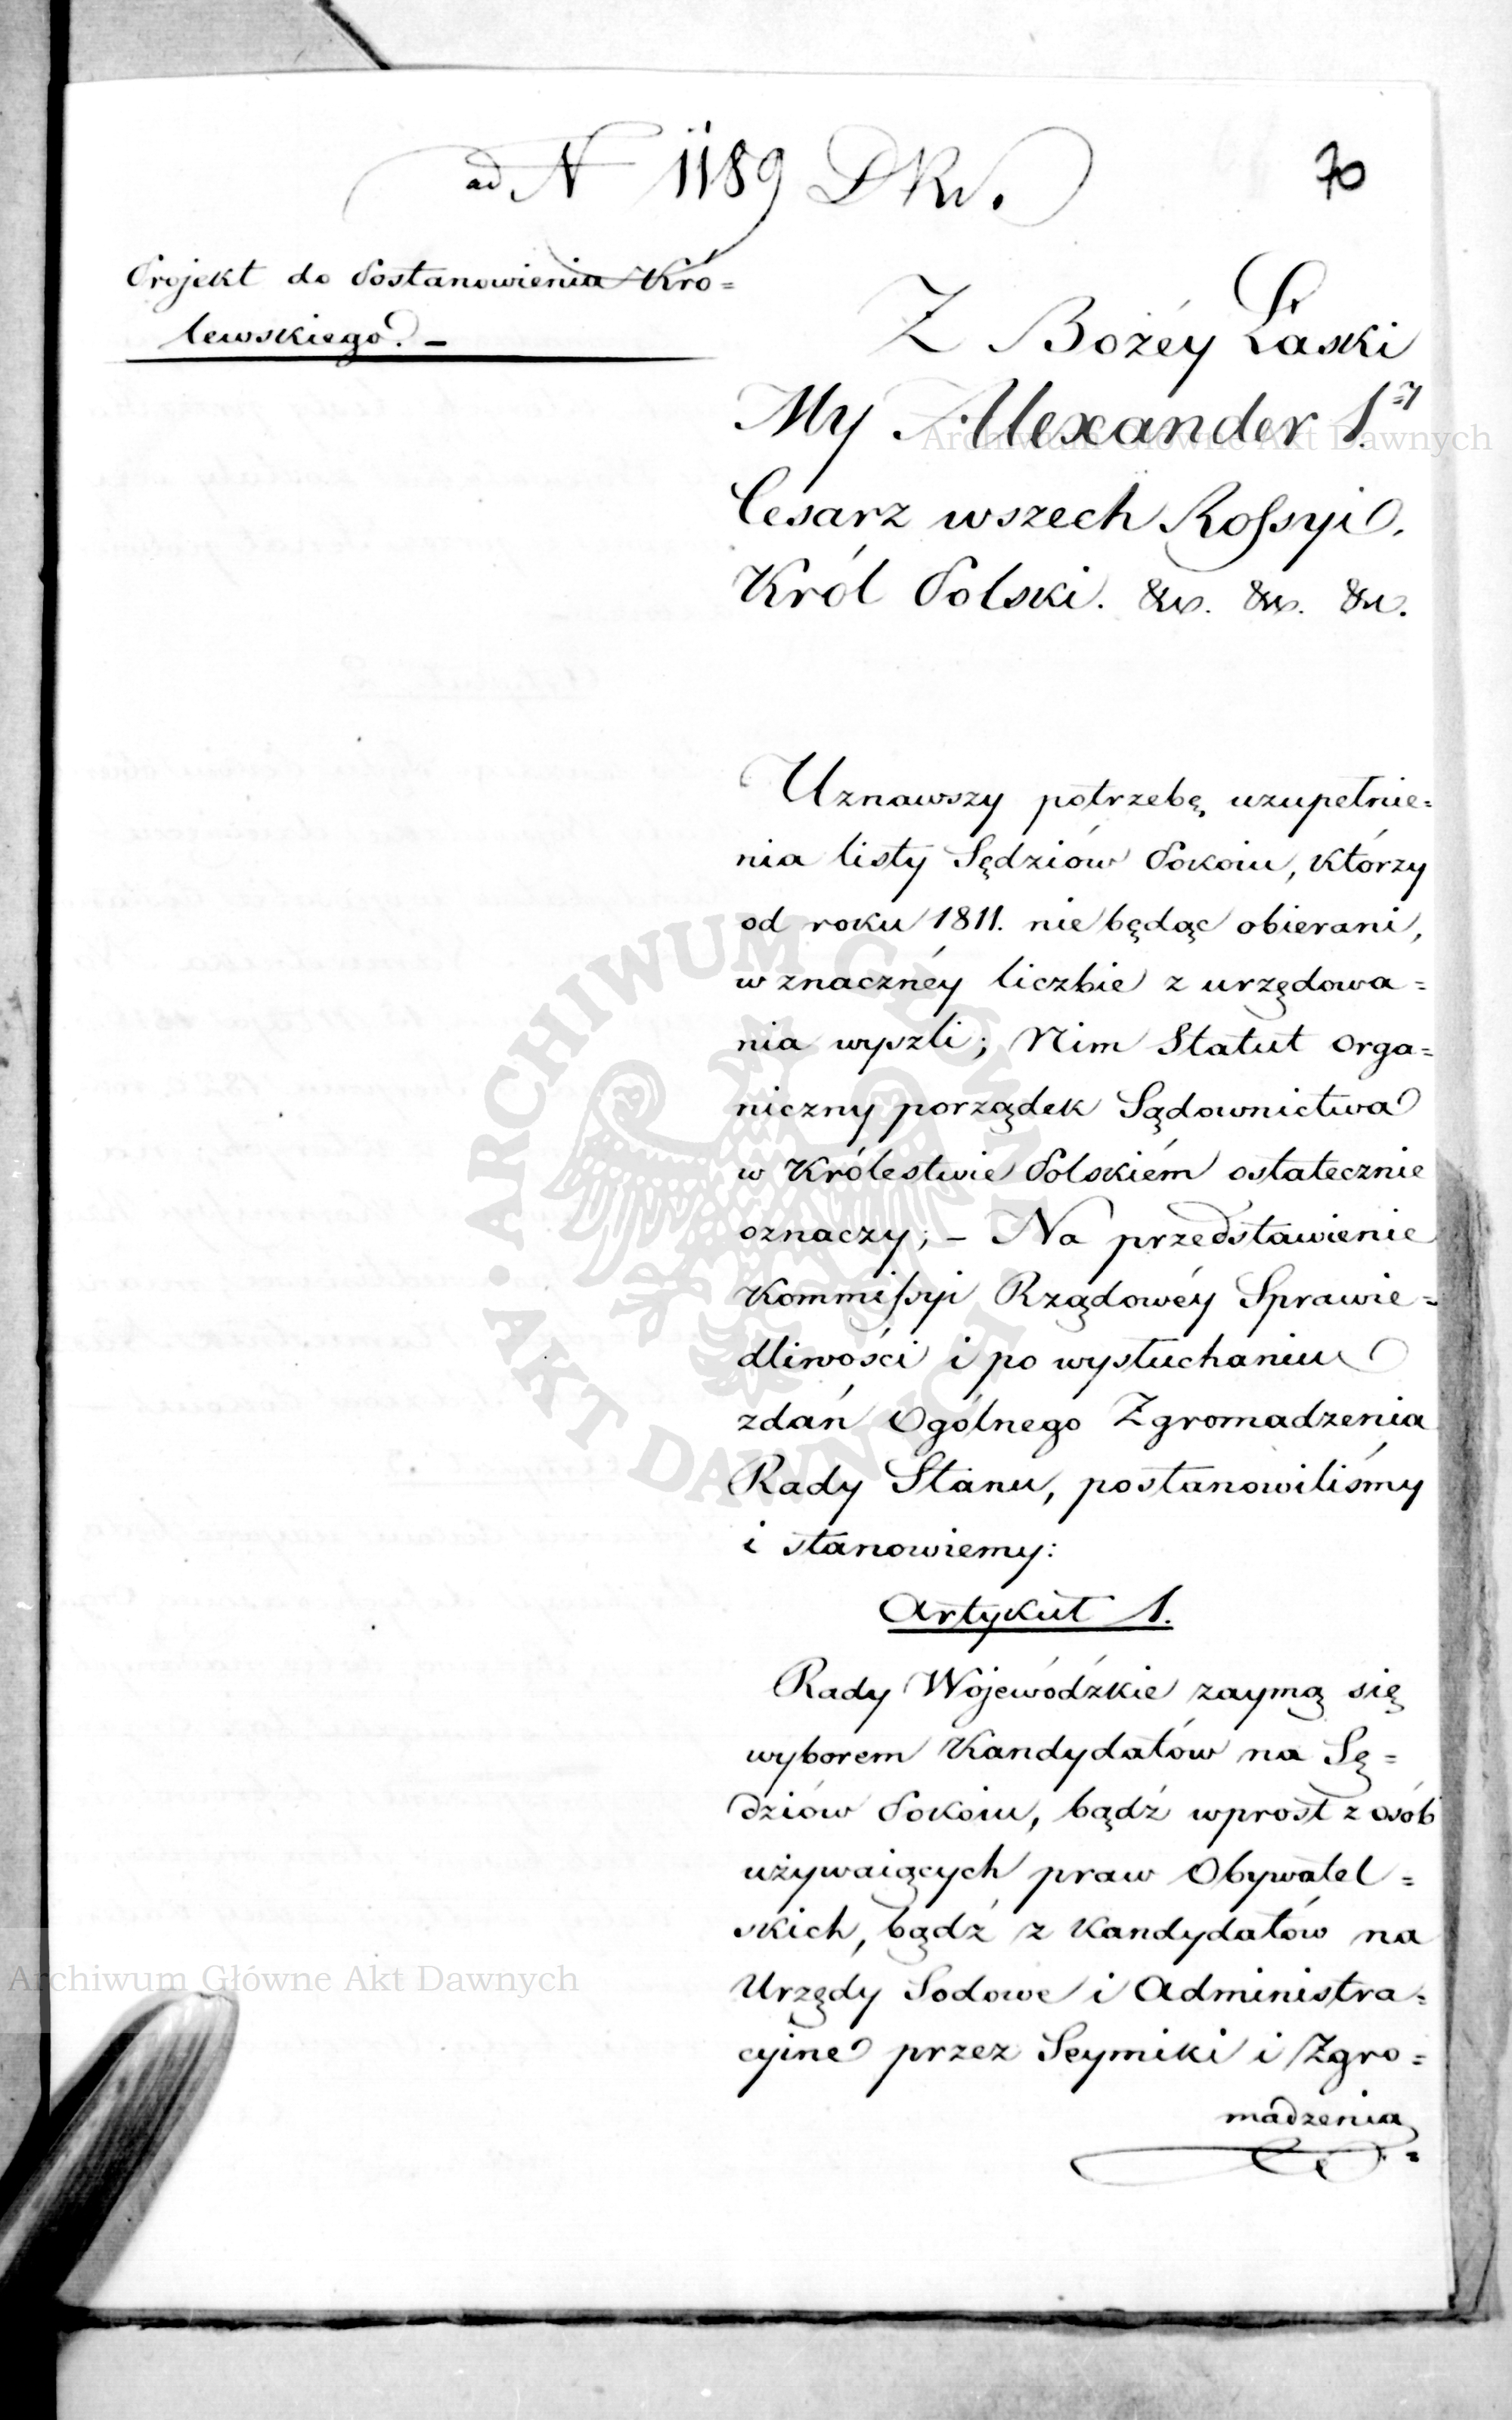 ad N 1189 DKr.
70
Projekt do Postanowienia Kró=
lewskiego. –
Z Bożéy Łaski
My Alexander 1.
Cesarz wszech Rossyi.
Król Polski. &c. &c. &c.
Uznawszy potrzebę uzupełnie=
nia listy Sędziów Pokoiu, którzy
od roku 1811. nie będąc obierani,
w znacznéy liczbie z urzędowa=
nia wyszli; Nim Statut orga=
niczny porządek Sądownictwa
w Królestwie Polskiém ostatecznie
oznaczy; – Na przedstawienie
Kommissyi Rządowéy Sprawie=
dliwości i po wysłuchaniu
zdań Ogólnego Zgromadzenia
Rady Stanu, postanowiliśmy
i stanowiemy:
Artykuł 1.
Rady Wojewódzkie zaymą się
wyborem Kandydatów na Sę=
dziów Pokoiu, bądź wprost z osób
używaiących praw Obywatel=
skich, bądź z Kandydatów na
Urzędy Sądowe i Administra=
cyine przez Seymiki i Zgro=
madzenia
Archiwum Główne Akt Dawnych
ARCHIWUM GŁÓWNE AKT DAWNYCH
Archiwum Główne Akt Dawnych